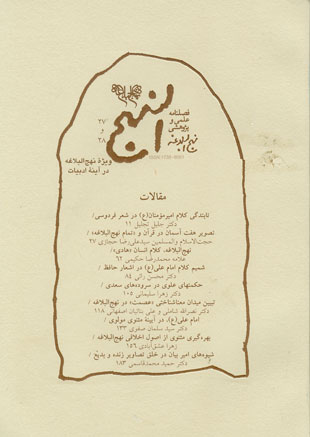 فصلنامه
علمی و
پژوهشی
نهج‌البلاغه
النهج
۲۷
و
۲۸
ویژهٔ نهج‌البلاغه
در آینهٔ ادبیات
مقالات
تابندگی کلام امیرمؤمنان(ع) در شعر فردوسی/
دکتر جلیل تجلیل ۱۱
تصویر هفت آسمان در قرآن و «تمام نهج‌البلاغه»/
حجت‌الاسلام والمسلمین سیدعلی‌رضا حجازی ۲۷
نهج‌البلاغه، کلام انسان «هادی»/
علامه محمدرضا حکیمی ۶۲
شمیم کلام امام علی(ع) در اشعار حافظ/
دکتر محسن راثی ۸۴
حکمتهای علوی در سروده‌های سعدی/
دکتر زهرا سلیمانی ۱۰۵
تبیین میدان معناشناختی «عصمت» در نهج‌البلاغه/
دکتر نصرالله شاملی و علی بنائیان اصفهانی ۱۱۸
امام علی(ع)، در آیینهٔ مثنوی مولوی/
دکتر سید سلمان صفوی ۱۳۳
بهره‌گیری مثنوی از اصول اخلاقی نهج‌البلاغه/
زهرا عشق‌آبادی ۱۵۶
شیوه‌های امیر بیان در خلق تصاویر زنده و بدیع/
دکتر حمید محمدقاسمی ۱۸۳